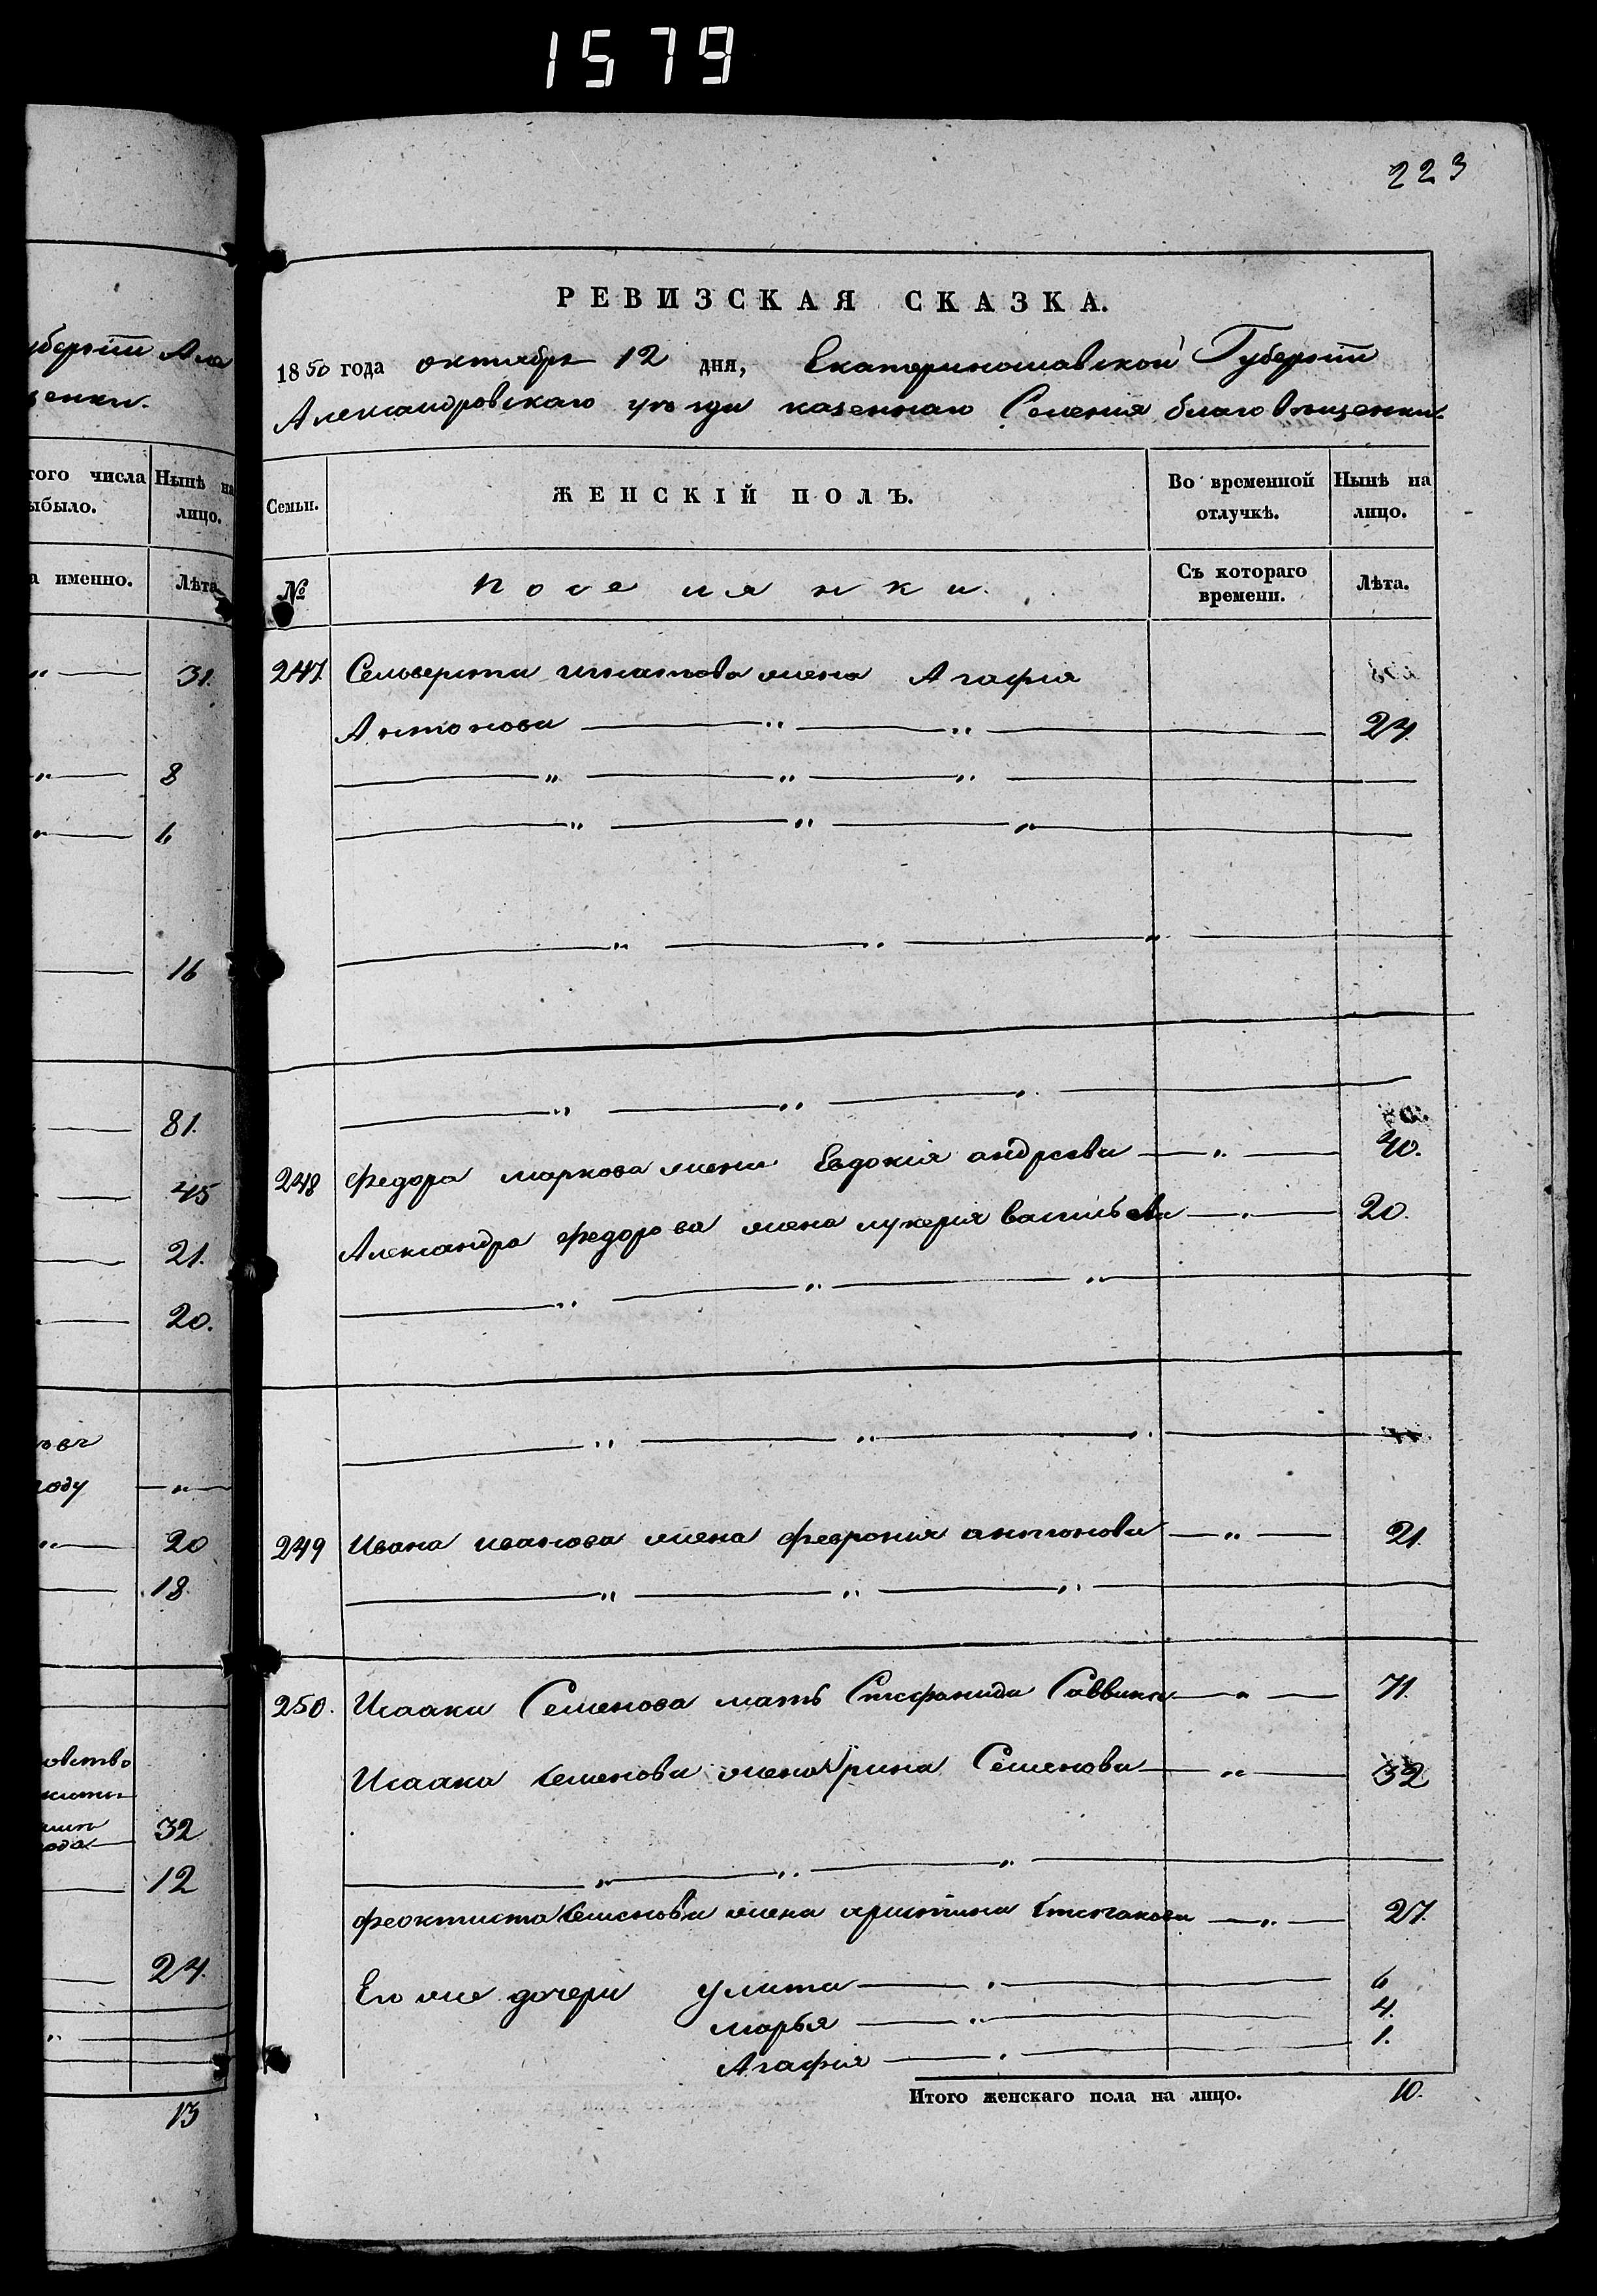 1579
223
РЕВИЗСКАЯ СКАЗКА.
1850 года октября 12 дня, Екатеринославской Губернiи
Александровскаго уѣзда казеннаго Селенiя благовѣщенки.
Семьи. ЖЕНСКIЙ ПОЛЪ. Во временной отлучкѣ. Нынѣ на лицо.
№ Поселянки. Съ котораго времени. Лѣта.
247. Сельверста игнатова жена Агафiя
Антонова — „ — „ — 24.
248 Федора маркова жена Евдокiя андреева — „ — 40.
Александра федорова жена лукерiя васильева — „ — 20.
249 Ивана иванова жена феврония антонова — „ — 21.
250. Исаака Семенова мать Стефанида Саввина — „ — 71.
Исаака Семенова жена Ирина Семенова — „ — 32
феоктиста Семенова жена христина Степанова — „ — 27.
Его же дочери улита — „ — 6
марья — „ — 4.
Агафiя — „ — 1.
Итого женскаго пола на лицо. 10.
того числа
выбыло.
Нынѣ на
лицо.
а именно.
Лѣта
31.
8
6
16
81.
45
21.
20.
году
20
18.
32
12
24.
13